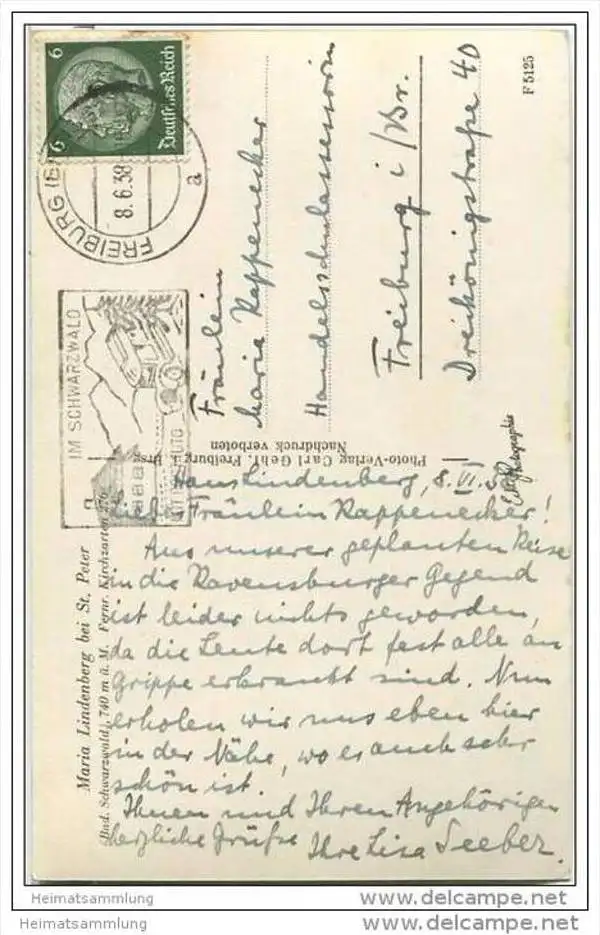 6 6
Deutsches Reich
FREIBURG (B
8.6.38
a
IM SCHWARZWALD
F 5125
Fräulein
Maria Rappenecker
Handelsschulassessorin
Freiburg i/Br.
Dreikönigstraße 40
Photo-Verlag Carl Gehl, Freiburg i. Brsg.
Nachdruck verboten
Maria Lindenberg bei St. Peter
Bad. Schwarzwald, 740 m ü. M. Fernr. Kirchzarten 276
Haus Lindenberg, 8. VI. 38
Liebes Fräulein Rappenecker!
Aus unserer geplanten Reise
in die Ravensburger Gegend
ist leider nichts geworden,
da die Leute dort fast alle an
Grippe erkrankt sind. Nun
erholen wir uns eben hier
in der Nähe, wo es auch sehr
schön ist.
Ihnen und Ihren Angehörigen
herzliche Grüße Ihre Lisa Seeber.
Heimatsammlung
Heimatsammlung
www.delcampe.net
www.delcampe.net